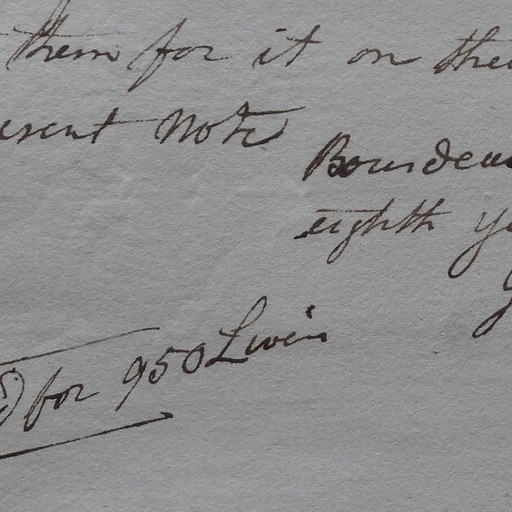 them for it on the
esent Note
Bourdeau
eighth y
for 950 Livers